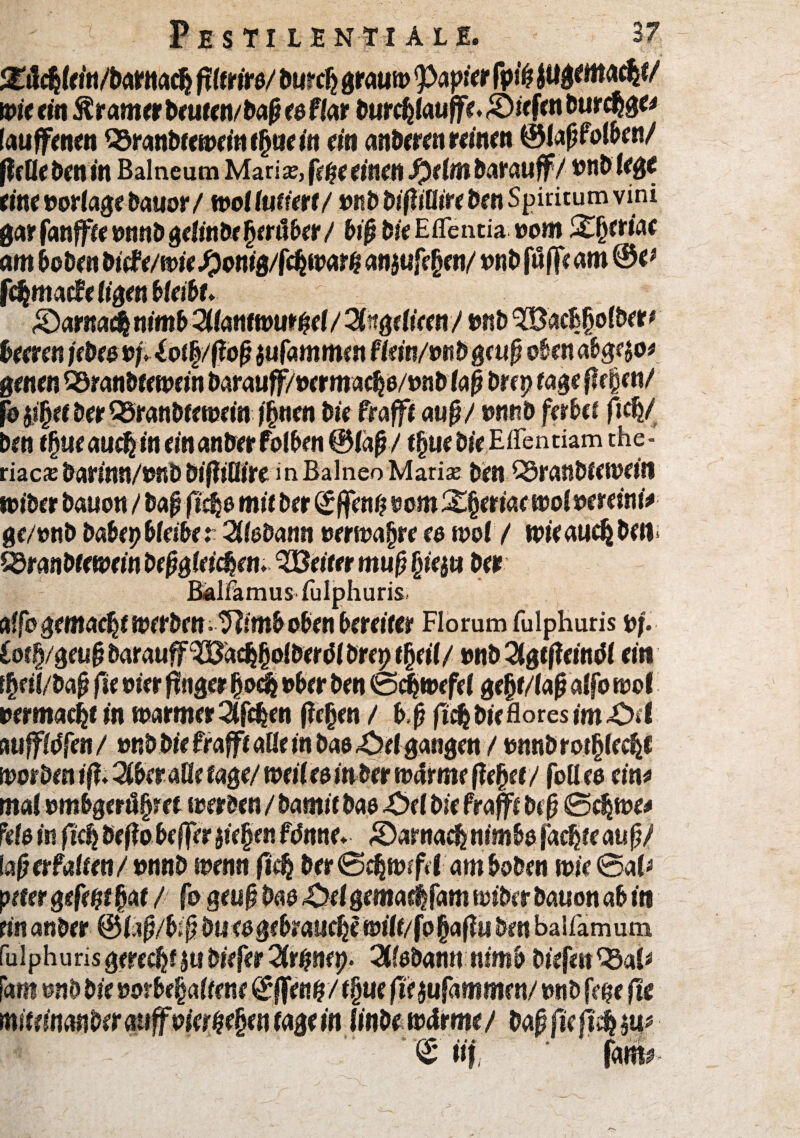 PESTILENTIALE. 37
Tüchlein/darnach filtrirs/ durch grauw Papier spitz zugemacht/
wie ein Kramer deuten/daß es klar durchlauffe. Diesen durchge-
lauffenen Brandtewein thue in ein anderen reinen Glaßkolben/
stelle den in Balneum Mariæ, setze einen Helm darauff/ vnd lege
eine vorlage dauor/ wol lutiert/ vnd distillire den Spiritum vini
gar sanffte vnnd gelinde herüber/ biß die Essentia vom Theriac
am boden dicke/wie Honig/schwartz anzusehen/ vnd süsse am Ge-
schmacke ligen bleibt.
Darnach nimb Allantwurtzel/Angelicen/ vnd Wachholder-
beeren jedes vj. Loth/stoß zusammen klein/vnd geuß oben abgezo-
genen Brandtewein darauff/vermachs/vnd laß drey tage stehen/
so zihet der Brandtewein jhnen die krafft auß/ vnnd ferbet sich/
den thue auch in ein ander kolben Glaß/ thue die Essentiam the-
riacæ darinn/vnd distillire in Balneo Mariæ den Brandtewein
wider dauon/ daß sichs mit der Essentz vom Theriac wol vereini-
ge/vnd dabey bleibe: Alsdann verwahre es wol/ wie auch den
Brandtewein deßgleichen. Weiter muß hiezu der
Balsamus sulphuris,
also gemacht werden: Nimb oben bereiter Florum sulphuris vj.
Loth/geuß darauff Wachholderöl drey theil/ vnd Agtsteinöl ein
theil/daß sie vier finger hoch vber den Schwefel geht/laß also wol
vermacht in warmer Aschen stehen/ biß sich die flores im Oel
aufflösen/ vnd die krafft alle in das Oel gangen/ vnnd rothlecht
worden ist. Aber alle tage/ weil es in der wärme stehet/ soll es ein-
mal vmbgerühret werden/damit das Oel die krafft deß Schwe-
fels in sich desto besser ziehen könne. Darnach nimbs sachte auß/
laß erkalten/ vnnd wenn sich der Schwefel am boden wie Sal-
peter gesetzt hat/ so geuß das Oel gemachsam wider dauon ab in
ein ander Glaß/biß du es gebrauchē wilt/so hastu den balsamum
sulphuris gerecht zu dieser Artzney. Alsdann nimb diesen Bal-
sam vnd die vorbehaltene Essentz/thue sie zusammen/ vnd setze sie
miteinander auff viertzehen tage in linde wärme/ daß sie sich zu-
C iij sam-